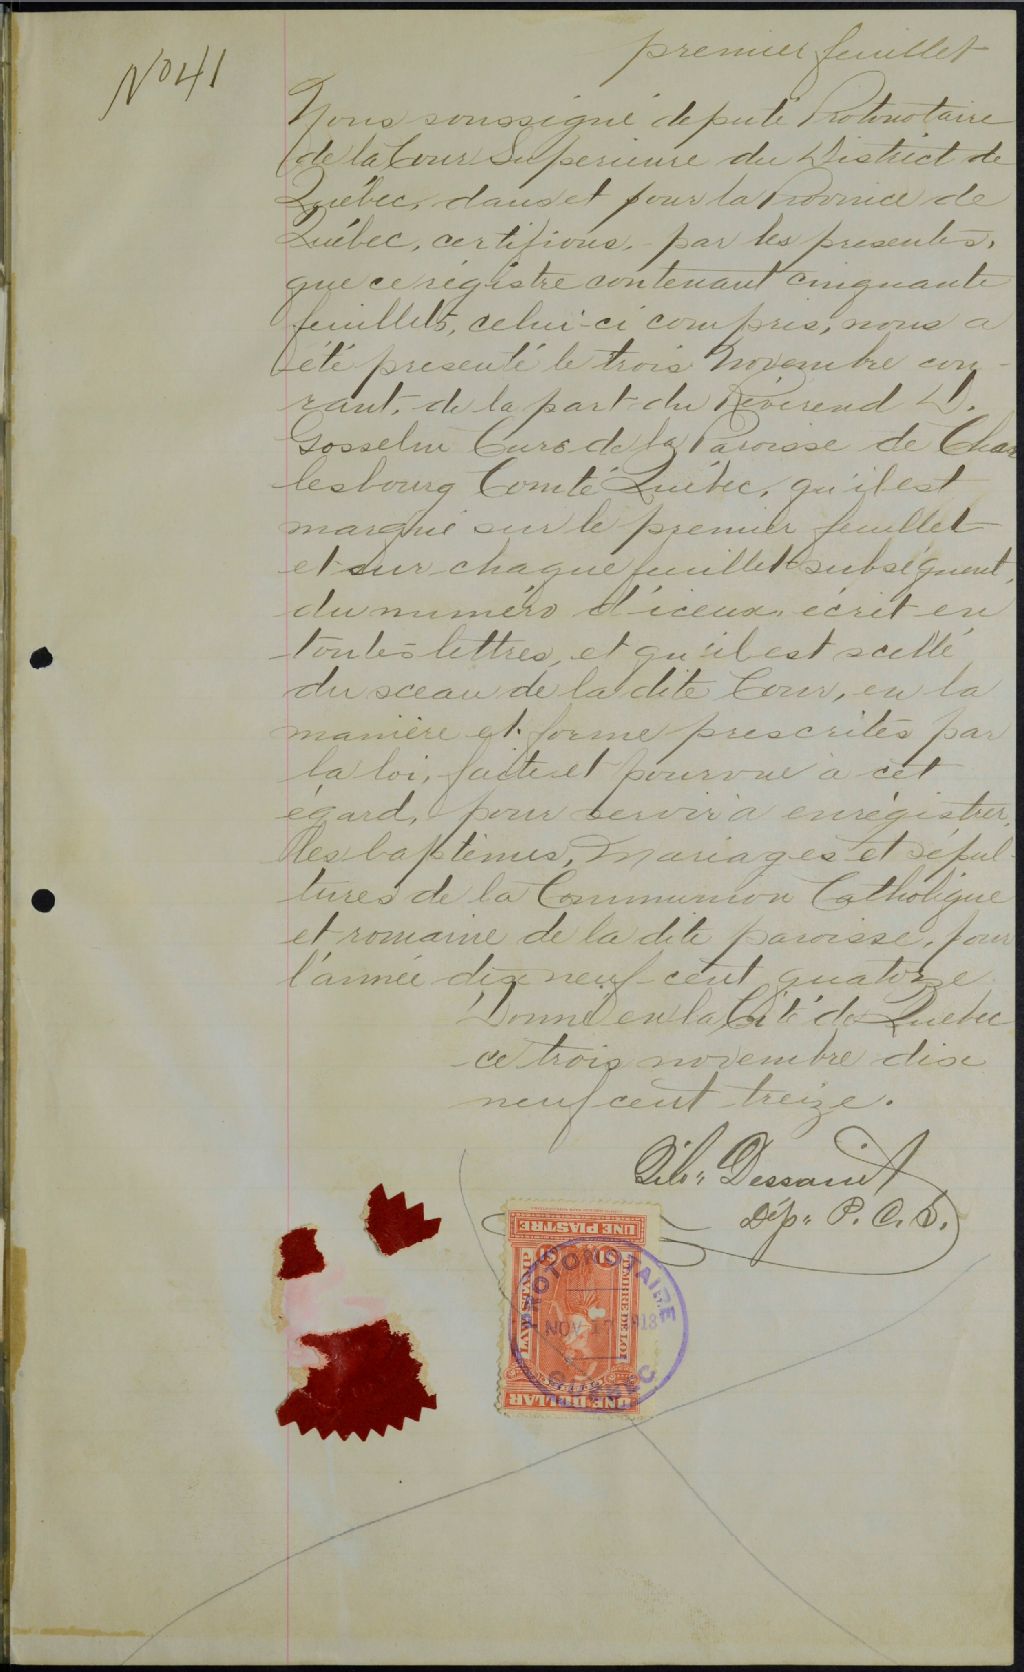 premier feuillet
No 41
Nous soussigné député Protonotaire
de la Cour Superieure du District de
Québec, dans et pour la Province de
Québec, certifions, par les presentes,
que ce régistre contenant cinquante
feuillets, celui-ci compris, nous a
été presenté le trois Novembre cou-
rant, de la part du Révérend D.
Gosselin Curé de la Paroisse de Char
lesbourg Comté Québec, qu'il est
marqué sur le premier feuillet
et sur chaque feuillet subséquent,
du numéro d'iceux, écrit en
toutes lettres, et qu'il est scellé
du sceau de la dite Cour, en la
manière et forme prescrites par
la loi, faite et pourvue à cet
égard, pour servir à enrégistrer,
les baptêmes, Mariages et sépul-
tures de la Communion Catholique
et romaine de la dite paroisse, pour
l'année dix neuf cent quatorze
Donné en la Cité de Québec
ce trois novembre dix
neuf cent treize.
Dép. P. C. S.
UNE PIASTRE
LAW STAMP
TIMBRE DE LOI
UNE DOLLAR
PROTONOTAIRE
NOV 1913
QUEBEC